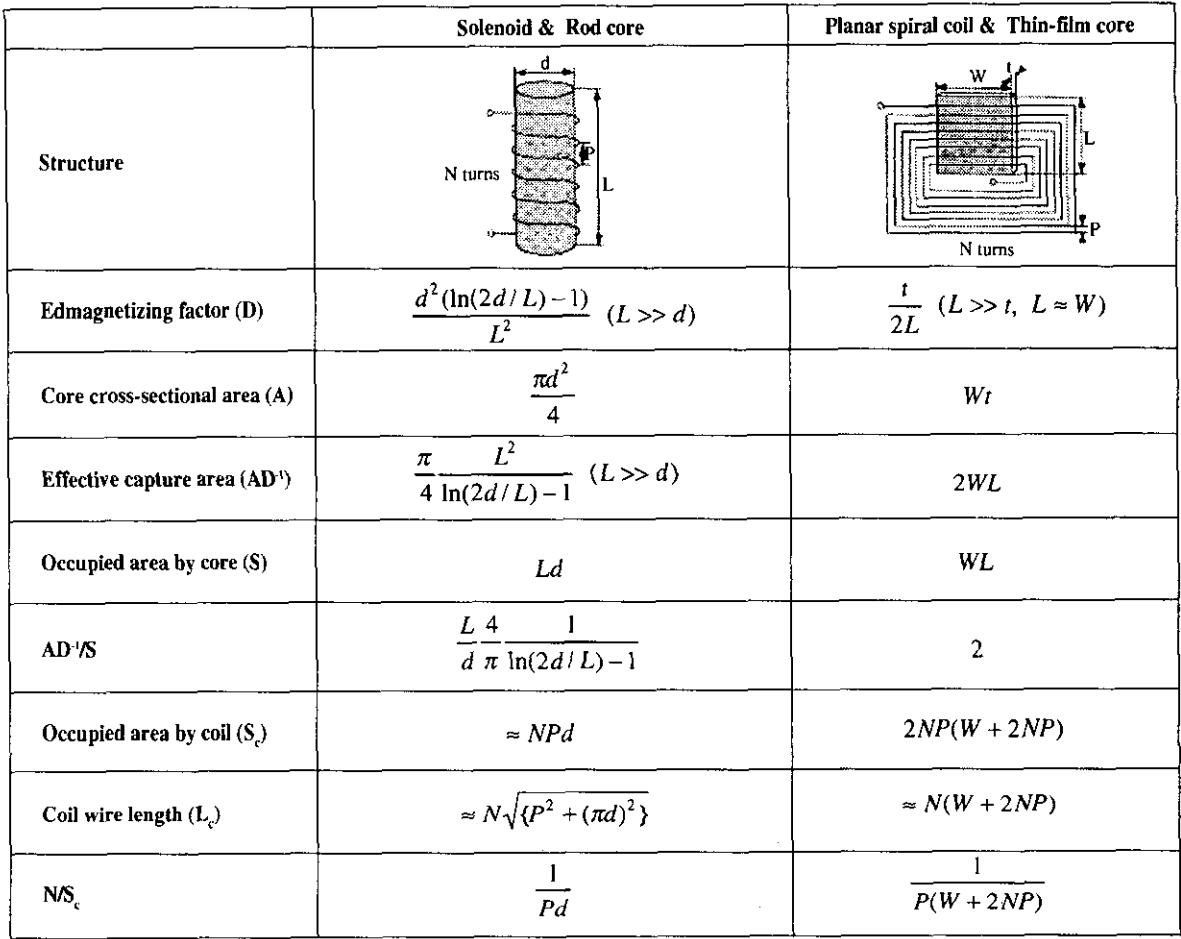 Solenoid & Rod core Planar spiral coil & Thin-film core
Structure
d
P
N turns
L
W t
L
P
N turns
Edmagnetizing factor (D) d²(ln(2d / L) − 1) / L² (L >> d) t / 2L (L >> t, L ≈ W)
Core cross-sectional area (A) πd² / 4 Wt
Effective capture area (AD⁻¹) π/4 L² / ln(2d / L) − 1 (L >> d) 2WL
Occupied area by core (S) Ld WL
AD⁻¹/S L/d 4/π 1 / ln(2d / L) − 1 2
Occupied area by coil (S_c) ≈ NPd 2NP(W + 2NP)
Coil wire length (L_c) ≈ N√{P² + (πd)²} ≈ N(W + 2NP)
N/S_c 1 / Pd 1 / P(W + 2NP)